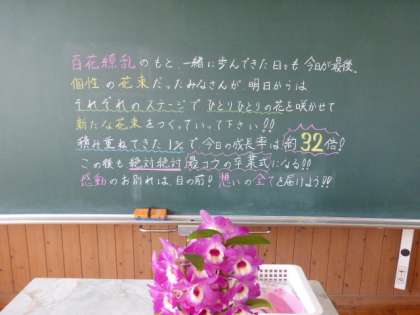 百花繚乱のもと、一緒に歩んできた日々も今日が最後。
個性の花束だったみなさんが、明日からは
それぞれのステージでひとりひとりの花を咲かせて
新たな花束をつくっていって下さい!!
積み重ねてきた1%で今日の成長率は約32倍!
この後も絶対絶対最コウの卒業式になる!!
感動のお別れは、目の前!想いの全てを届けよう!!